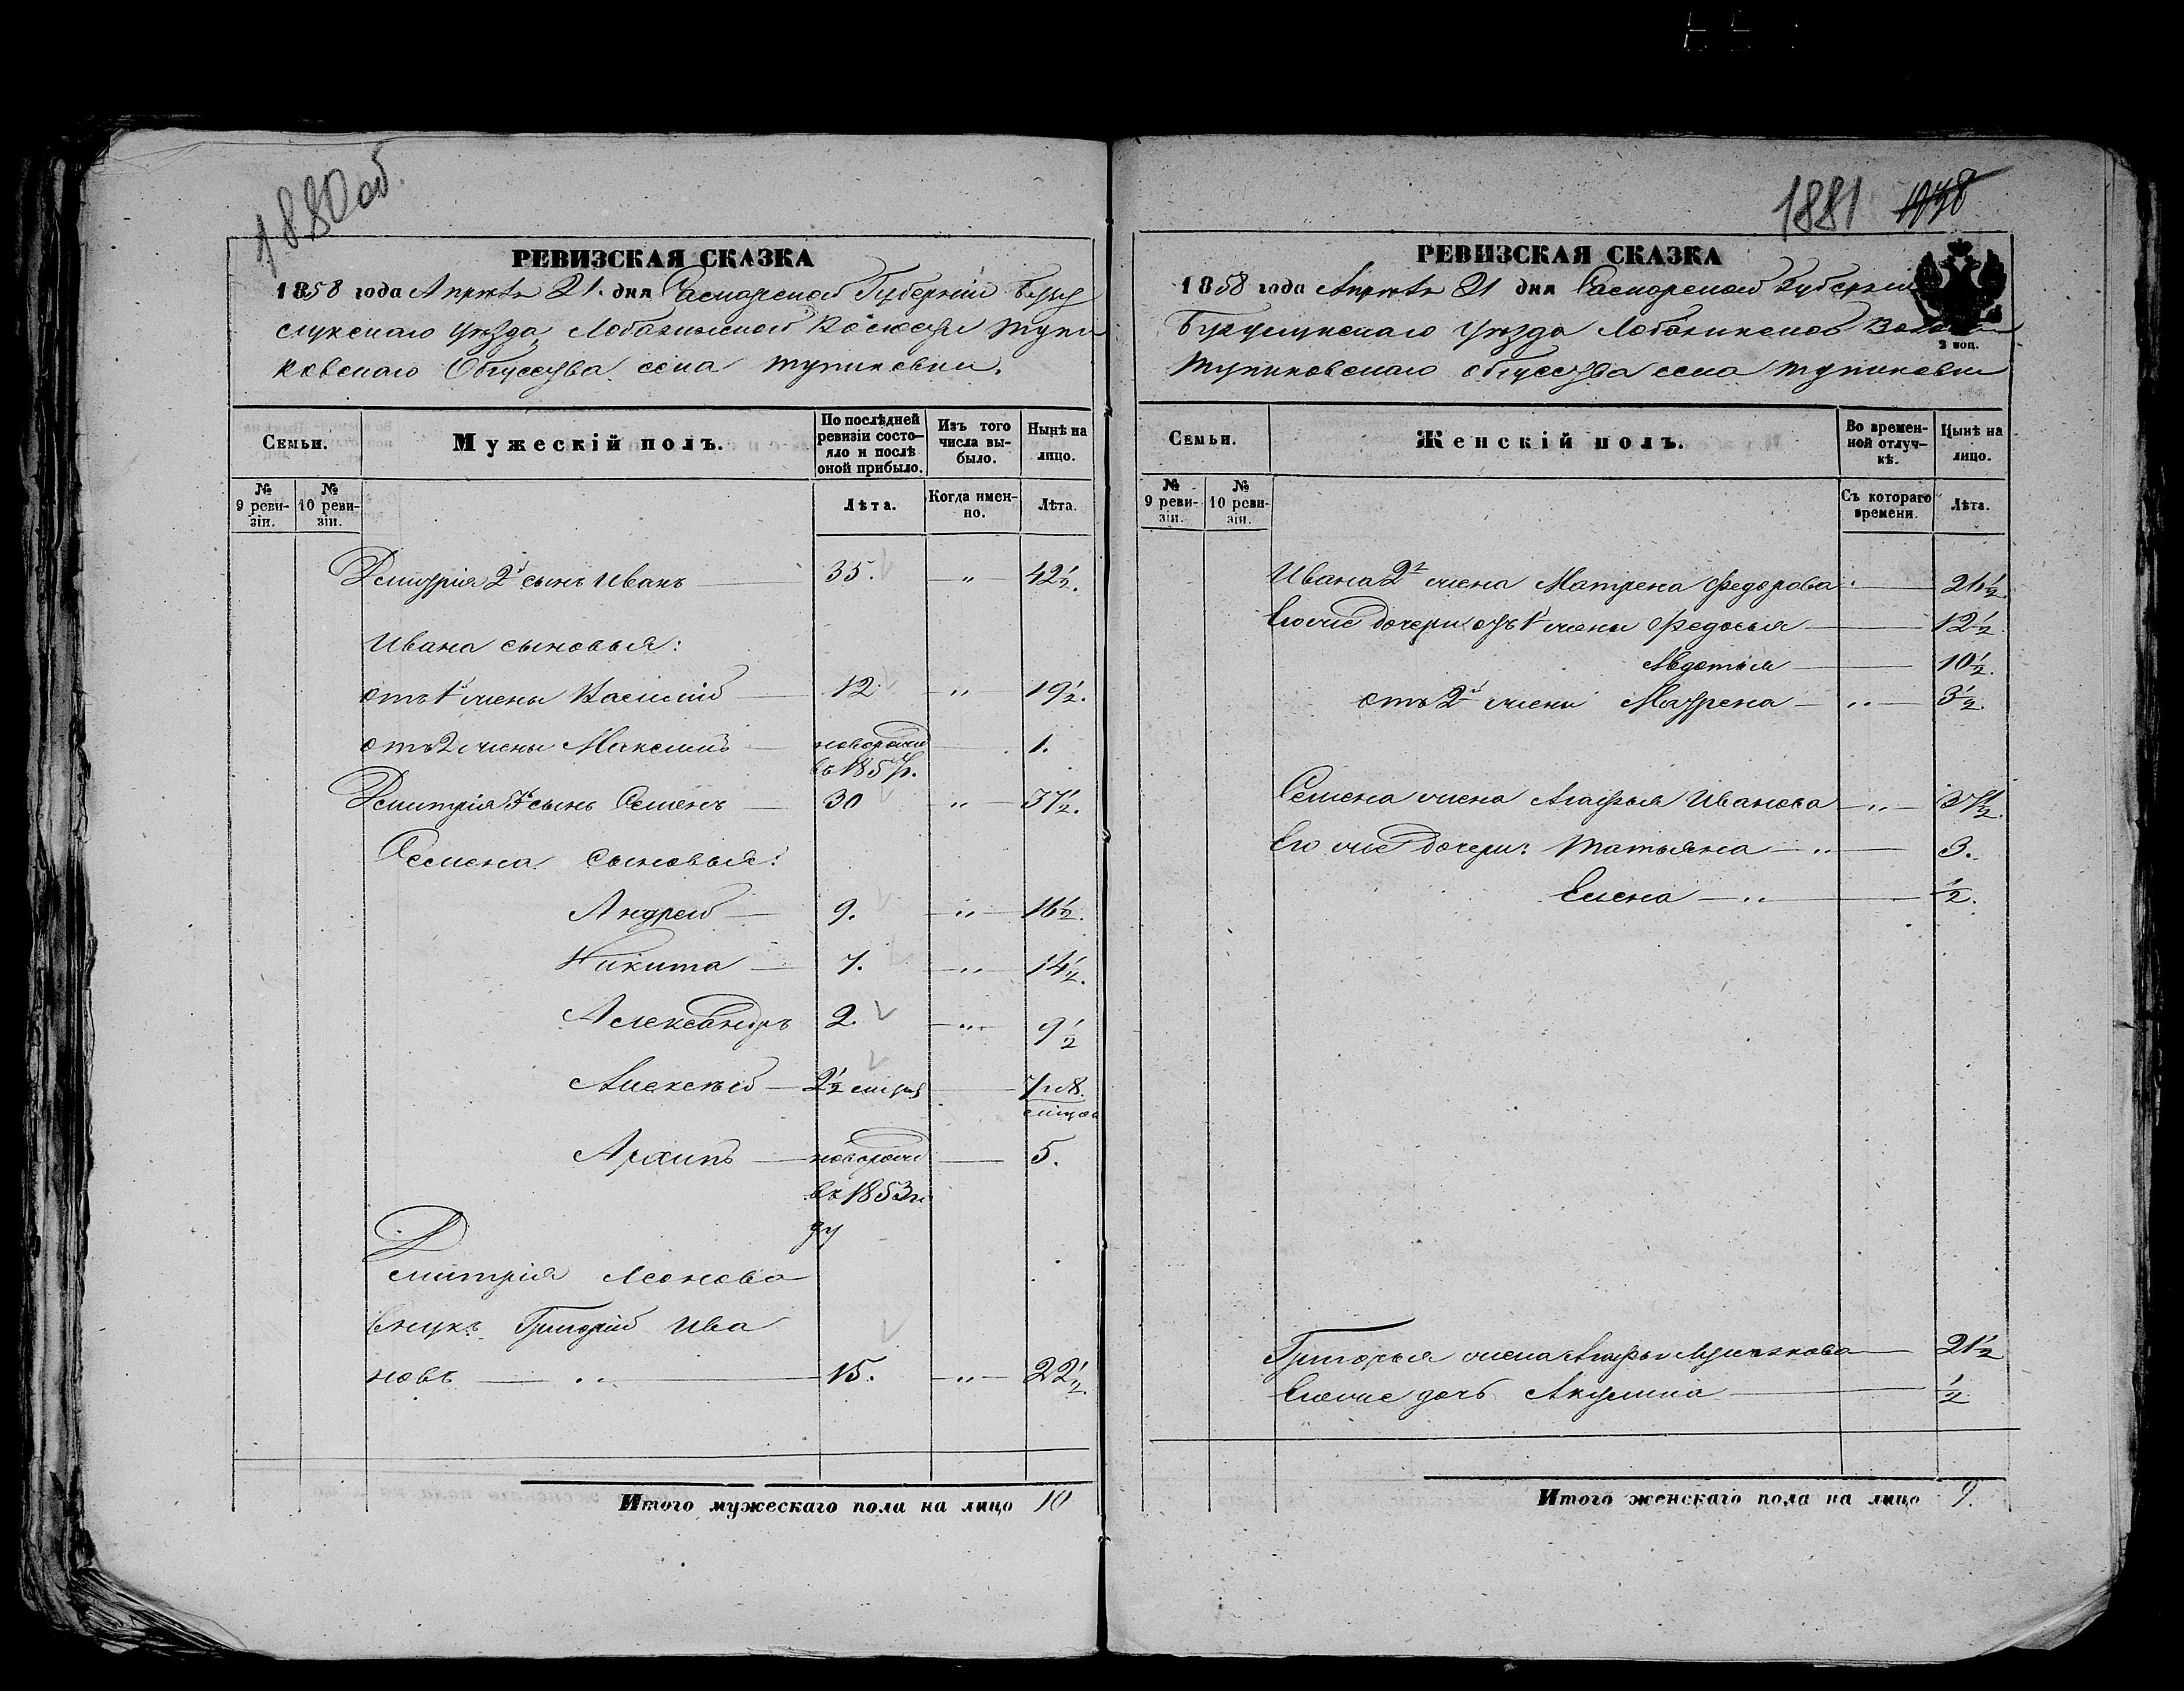 1880 об.
РЕВИЗСКАЯ СКАЗКА
1858 года Апрѣля 21. дня Самарской Губерніи Бугу
слукскаго уѣзда, Лобазинской Волости Тупи
ковскаго Общества села Тупиковки.
Семьи.
Мужескій полъ.
По послѣдней ревизіи состояло и послѣ оной прибыло.
Изъ того числа выбыло.
Нынѣ на лицо.
№ 9 ревизіи.
№ 10 ревизіи.
Лѣта.
Когда именно.
Лѣта.
Дмитрія 2й сынъ Иванъ 35. " 42½.
Ивана сыновья:
отъ 1й жены Василій 12 " 19½.
отъ 2 жены Максимъ новорожд 1.
въ 1857 г.
Дмитрія 3й сынъ Семенъ 30 " 37½.
Семена сыновья:
Андрей 9. " 16½.
Никита 7. " 14½.
Александръ 2. " 9½
Алексѣй 2½ мѣсяц 7 и 8.
мѣсяцов
Архипъ новорожд 5.
въ 1853 го
ду
Дмитрія Леонова
внукъ Григорій Ива
новъ " 15. " 22½.
Итого мужескаго пола на лицо 10
1881 1938
РЕВИЗСКАЯ СКАЗКА
1858 года Апрѣля 21 дня Самарской Губерніи
Бугуслукскаго уѣзда Лобазинской Волости
3 коп.
Тупиковскаго общества села Тупиковки
Семьи.
Женскій полъ.
Во временной отлучкѣ.
Нынѣ на лицо.
№ 9 ревизіи.
№ 10 ревизіи.
Съ котораго времени.
Лѣта.
Ивана 2я жена Матрена Федорова 26½.
Его же дочери отъ 1й жены Федосья 12½
Авдотья 10½.
отъ 2й жены Матрена " 3½.
Семена жена Агафья Иванова " 37½.
Его же дочери: Татьяна " 3.
Елена " ½.
Григорья жена Агафья 21½
Его же дочь Акулина ½
Итого женскаго пола на лицо 9.